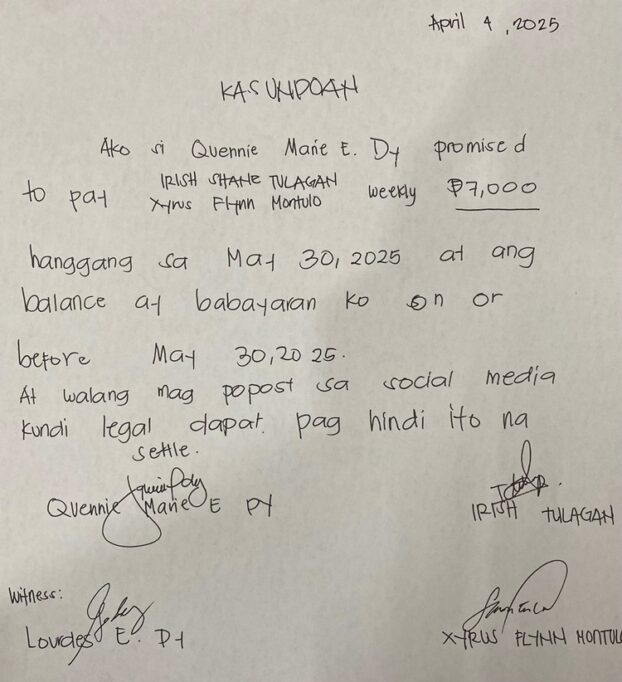 April 4, 2025
KASUNDOAN
Ako si Quennie Marie E. Dy promised
to pay IRISH SHANE TULAGAN weekly ₱7,000
Xyrus Flynn Montulo
hanggang sa May 30, 2025 at ang
balance ay babayaran ko on or
before May 30, 2025.
At walang mag popost sa social media
kundi legal dapat. pag hindi ito na
settle.
Quennie Marie E Dy
IRISH TULAGAN
Witness:
Lourdes E. Dy
XYRUS FLYNN MONTULO